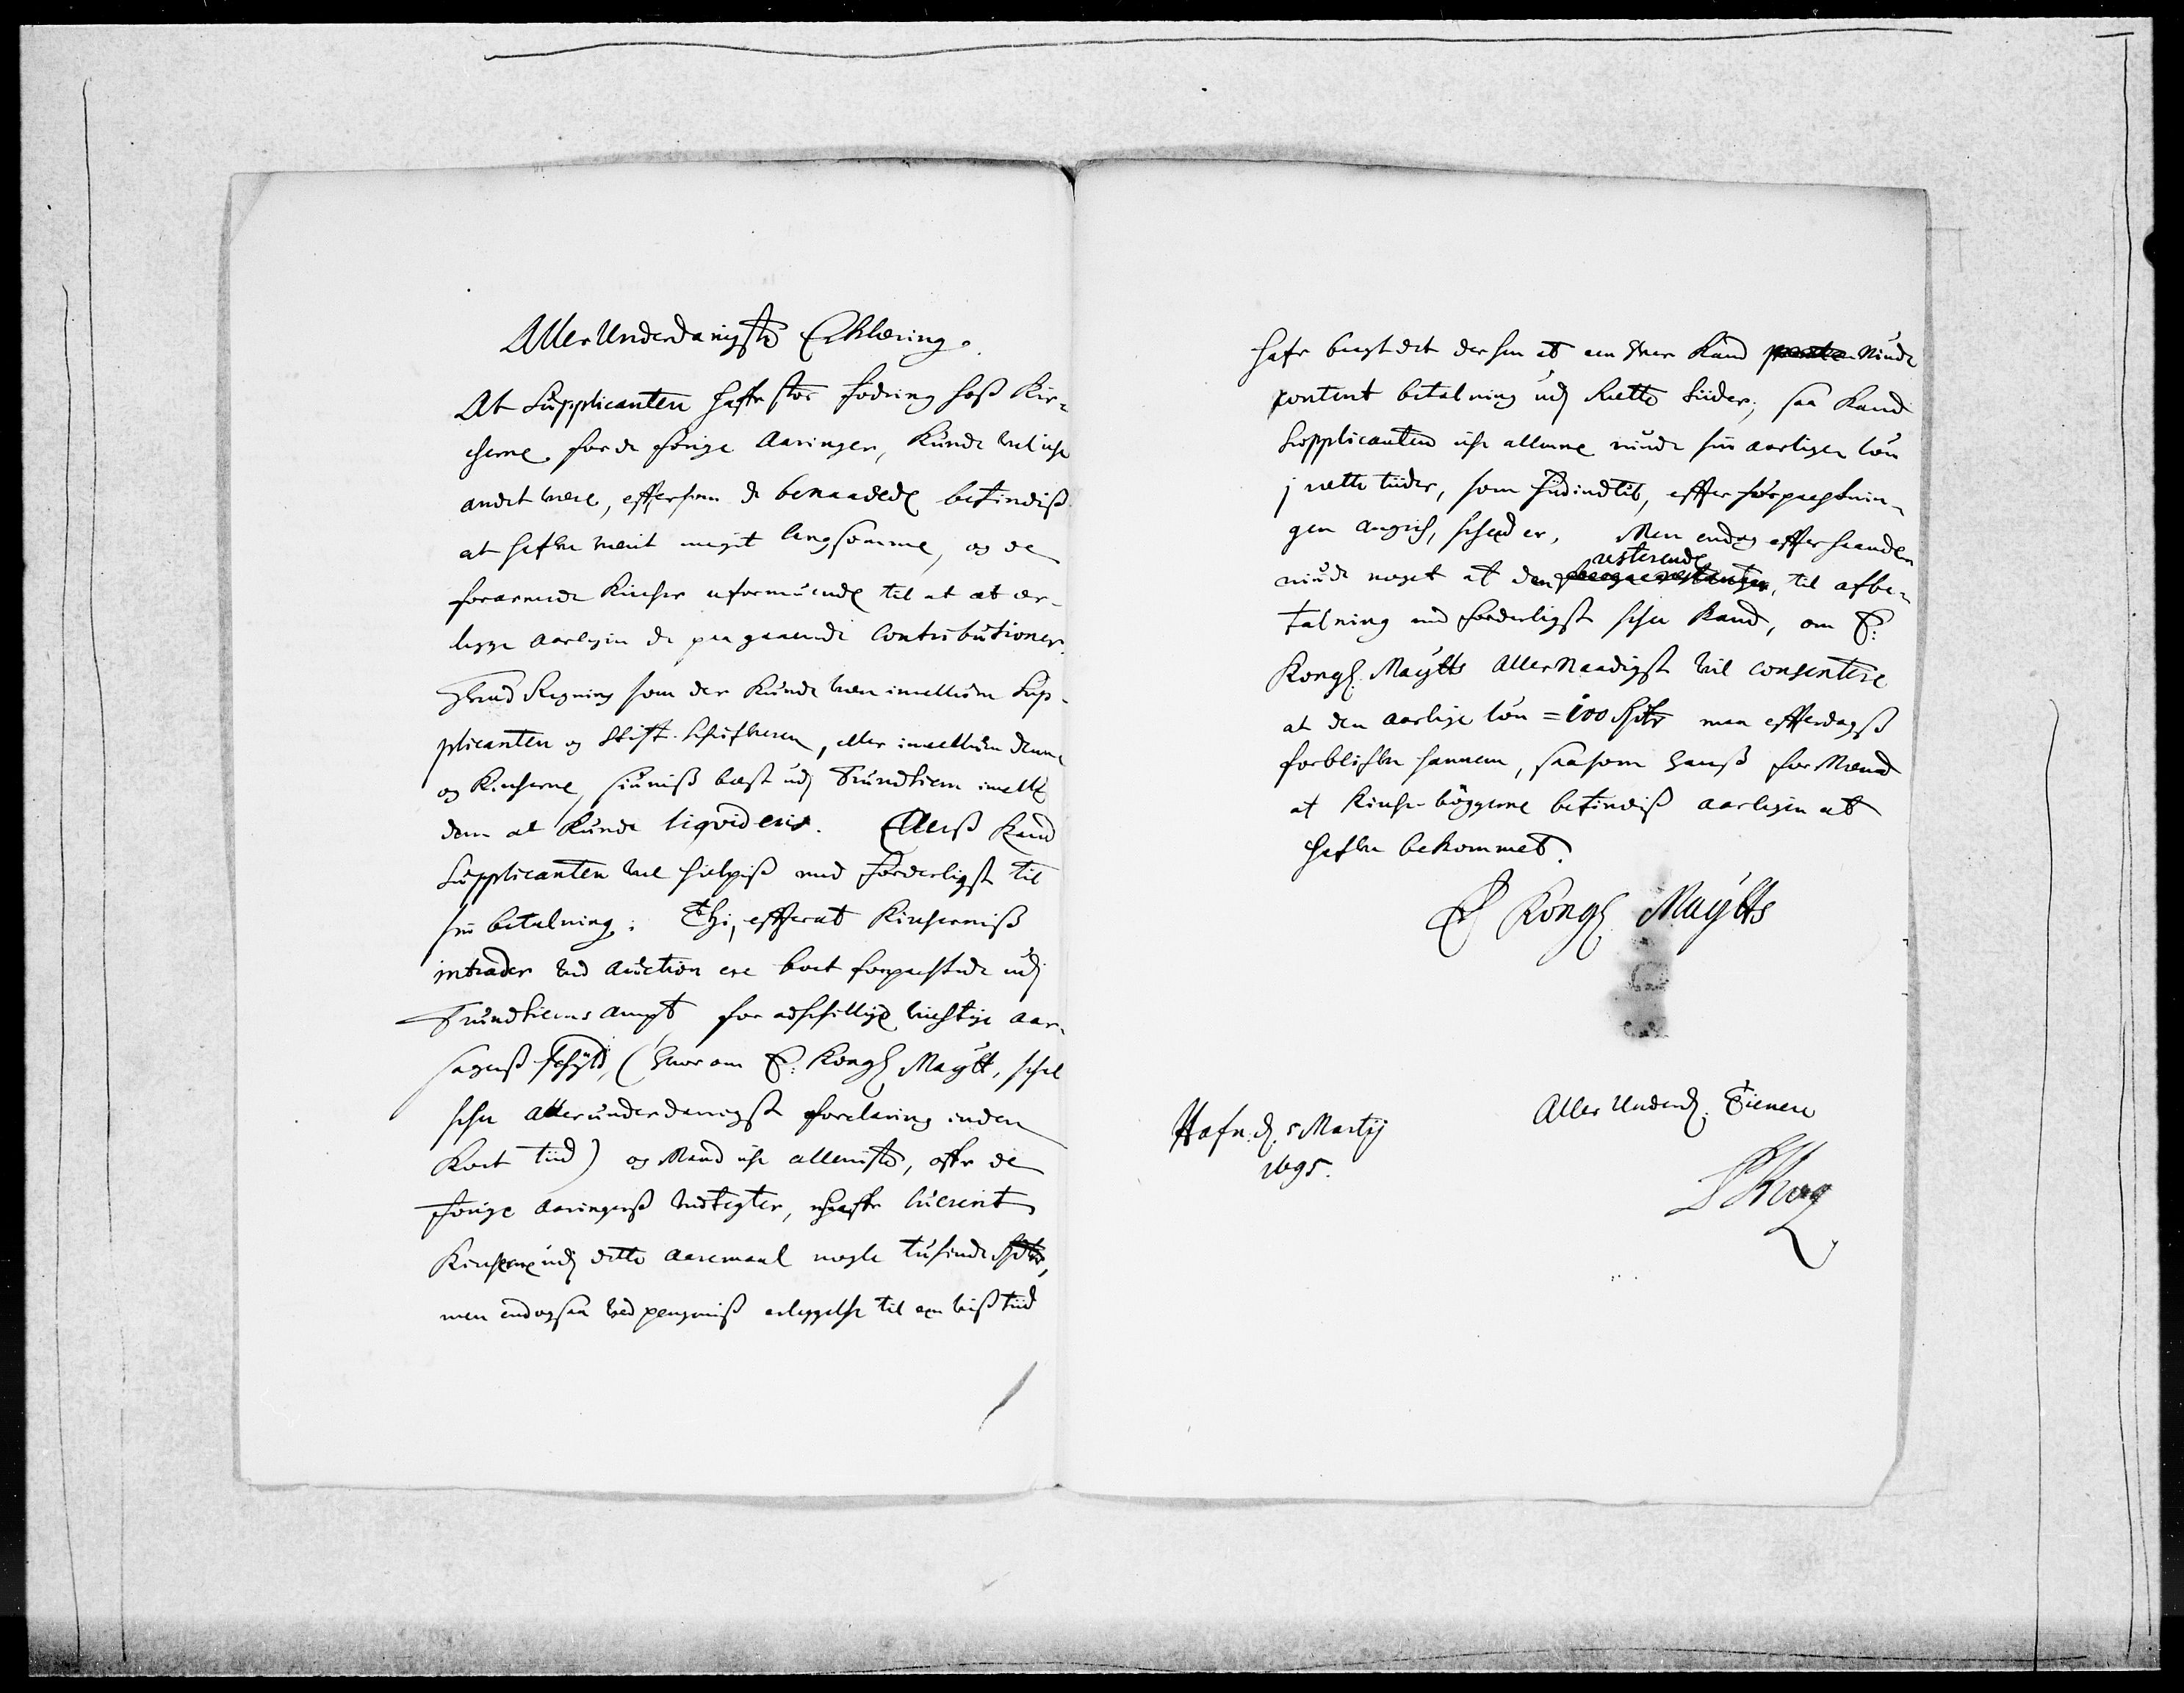 AllerUnderdanigste Erklæring.
At Supplicanten hafr stor fodring hoß Kir-
cherne for de forige Aaringer, Kunde vel iche
andet være, efftersom de benaadede befindiß
at hafve værit meget langsomme, og de
forarmede Kircher uformuende til at ær-
legge aarligen de paagaaende Contributioner.
Hvad Regning som der Kunde være imellum Sup-
plicanten og Stift-Schrifveren, eller imellum dem
og Kircherne, siuniß best udj Trundhiem imellē
dem at Kunde liqvideris. Ellerß Kand
Supplicanten vel hielpiß med forderligst til
sin betalning; Thi, efferat Kircherniß
intrader ved auction ere bort forpachtede udj
Trundhiems ampt for adschillige wichtige aar-
sagerß schyld, (hvorom E: Kongl Maytt, schal
schee allerunderdanigst forclaring inden
Kort tiid) og Mand iche alleniste, offr de
forige aaringerß Indtegter, hafr lucrerit
Kircherne udj dette aaremaal nogle tusinde Rdlr,
men endogsaa ved pengeniß erleggelse til en viß tiid
hafr bragt det der hen at een hver Kand niude
content betalning udj Rette tiider; saa Kand
Supplicanten iche allene niude sin aarligen løn
j rette tiider, som hidindtil, effter forpachtnin-
gen angich, scheed er, Men endog effterhaanden
niude noget at den resterende, til afbe-
talning med forderligst schee Kand, om E:
Kongl. Maytts AllerNaadigst vil consentere
at den aarlige løn = 100 Rdlr man efferdagß
forblifve hannem, saasom hanß forMænd
af Kirche-bøggerne befindiß aarligen at
hafve bekommet.
E Kongl Maytts
Aller Underd. Tienere
Hafn. d. 5 Martij
1695.